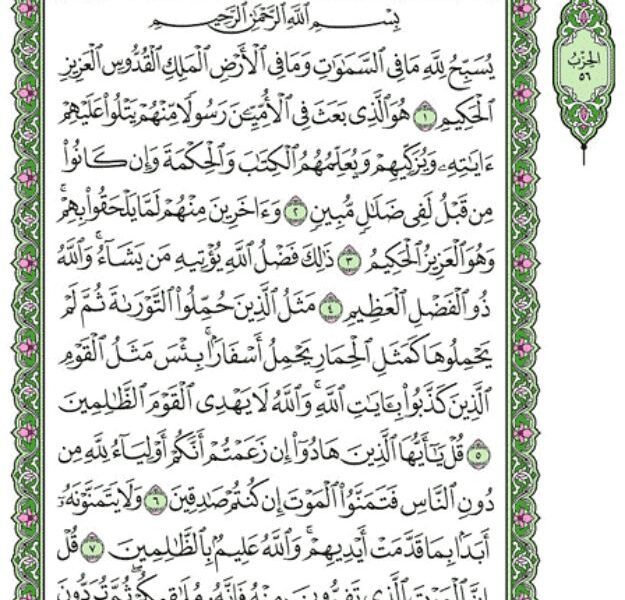 بِسْمِ ٱللَّهِ ٱلرَّحْمَٰنِ ٱلرَّحِيمِ
يُسَبِّحُ لِلَّهِ مَا فِى ٱلسَّمَٰوَٰتِ وَمَا فِى ٱلْأَرْضِ ٱلْمَلِكِ ٱلْقُدُّوسِ ٱلْعَزِيزِ
ٱلْحَكِيمِ ١ هُوَ ٱلَّذِى بَعَثَ فِى ٱلْأُمِّيِّـۧنَ رَسُولًا مِّنْهُمْ يَتْلُوا۟ عَلَيْهِمْ
ءَايَٰتِهِۦ وَيُزَكِّيهِمْ وَيُعَلِّمُهُمُ ٱلْكِتَٰبَ وَٱلْحِكْمَةَ وَإِن كَانُوا۟
مِن قَبْلُ لَفِى ضَلَٰلٍ مُّبِينٍ ٢ وَءَاخَرِينَ مِنْهُمْ لَمَّا يَلْحَقُوا۟ بِهِمْ ۚ
وَهُوَ ٱلْعَزِيزُ ٱلْحَكِيمُ ٣ ذَٰلِكَ فَضْلُ ٱللَّهِ يُؤْتِيهِ مَن يَشَآءُ ۚ وَٱللَّهُ
ذُو ٱلْفَضْلِ ٱلْعَظِيمِ ٤ مَثَلُ ٱلَّذِينَ حُمِّلُوا۟ ٱلتَّوْرَىٰةَ ثُمَّ لَمْ
يَحْمِلُوهَا كَمَثَلِ ٱلْحِمَارِ يَحْمِلُ أَسْفَارًۢا ۚ بِئْسَ مَثَلُ ٱلْقَوْمِ
ٱلَّذِينَ كَذَّبُوا۟ بِـَٔايَٰتِ ٱللَّهِ ۚ وَٱللَّهُ لَا يَهْدِى ٱلْقَوْمَ ٱلظَّٰلِمِينَ
٥ قُلْ يَٰٓأَيُّهَا ٱلَّذِينَ هَادُوٓا۟ إِن زَعَمْتُمْ أَنَّكُمْ أَوْلِيَآءُ لِلَّهِ مِن
دُونِ ٱلنَّاسِ فَتَمَنَّوُا۟ ٱلْمَوْتَ إِن كُنتُمْ صَٰدِقِينَ ٦ وَلَا يَتَمَنَّوْنَهُۥٓ
أَبَدًۢا بِمَا قَدَّمَتْ أَيْدِيهِمْ ۚ وَٱللَّهُ عَلِيمٌۢ بِٱلظَّٰلِمِينَ ٧ قُلْ
إِنَّ ٱلْمَوْتَ ٱلَّذِى تَفِرُّونَ مِنْهُ فَإِنَّهُۥ مُلَٰقِيكُمْ ۖ ثُمَّ تُرَدُّونَ
ٱلْحِزْبُ
٥٦